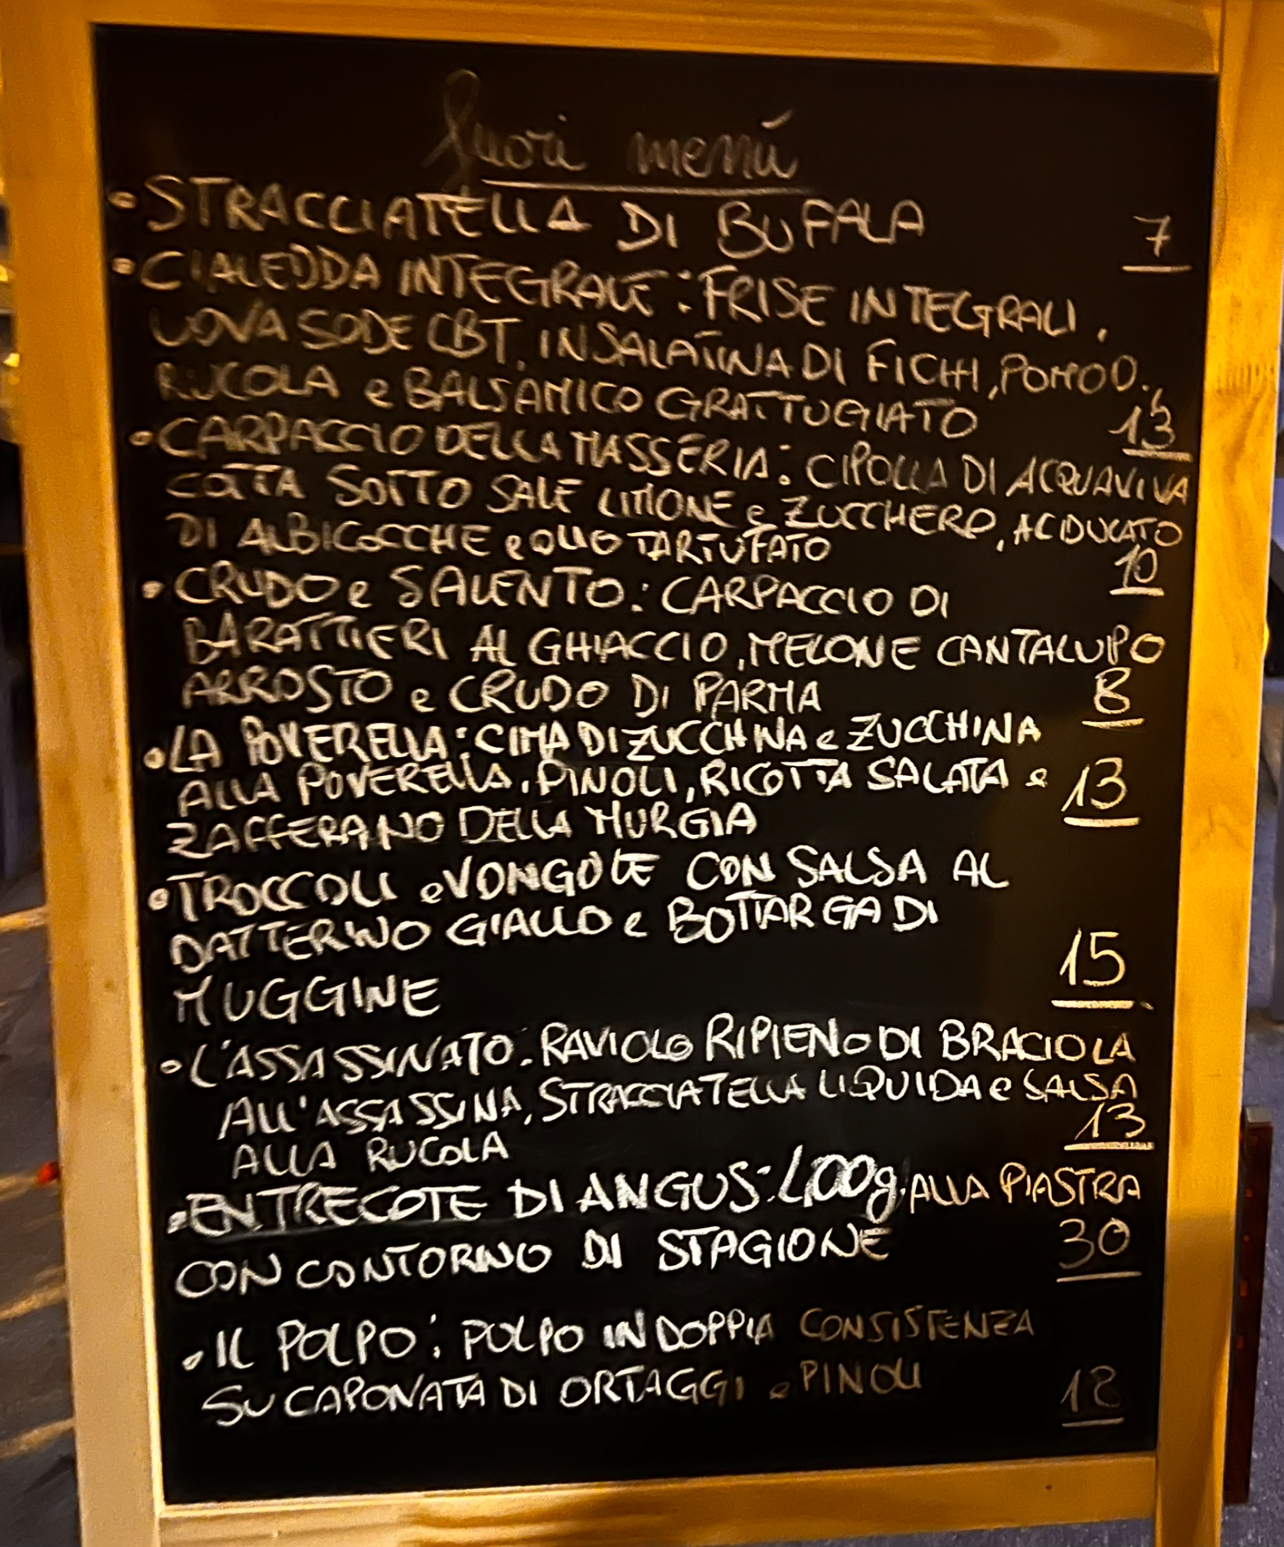 fuori menú
• STRACCIATELLA DI BUFALA 7
• CIALEDDA INTEGRALE: FRISE INTEGRALI,
UOVA SODE CBT, INSALATINA DI FICHI, POMOD.,
RUCOLA e BALSAMICO GRATTUGIATO 13
• CARPACCIO DELLA MASSERIA: CIPOLLA DI ACQUAVIVA
COTTA SOTTO SALE LIMONE e ZUCCHERO, ACIDULATO
DI ALBICOCCHE e OLIO TARTUFATO 10
• CRUDO e SALENTO: CARPACCIO DI
BARATTIERI AL GHIACCIO, MELONE CANTALUPO
ARROSTO e CRUDO DI PARMA 8
• LA POVERELLA: CIMA DI ZUCCHINA e ZUCCHINA
ALLA POVERELLA, PINOLI, RICOTTA SALATA e 13
ZAFFERANO DELLA MURGIA
• TROCCOLI e VONGOLE CON SALSA AL
DATTERINO GIALLO e BOTTARGA DI
MUGGINE 15
• L'ASSASSINATO: RAVIOLO RIPIENO DI BRACIOLA
ALL'ASSASSINA, STRACCIATELLA LIQUIDA e SALSA
ALLA RUCOLA 13
• ENTRECOTE DI ANGUS: 400g. ALLA PIASTRA
CON CONTORNO DI STAGIONE 30
• IL POLPO: POLPO IN DOPPIA CONSISTENZA
SU CAPONATA DI ORTAGGI e PINOLI 18